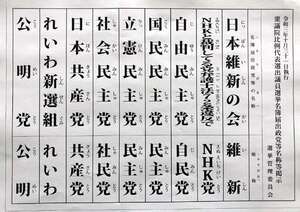 令和三年十月三十一日執行
衆議院比例代表選出議員選挙名簿届出政党等名称等掲示
選挙管理委員会
名簿届出政党等の名称
略称
日本維新の会
維新
NHKと裁判してる党弁護士法72条違反で
NHK党
自由民主党
自民党
立憲民主党
民主党
社会民主党
社民党
日本共産党
共産党
れいわ新選組
れいわ
公明党
公明